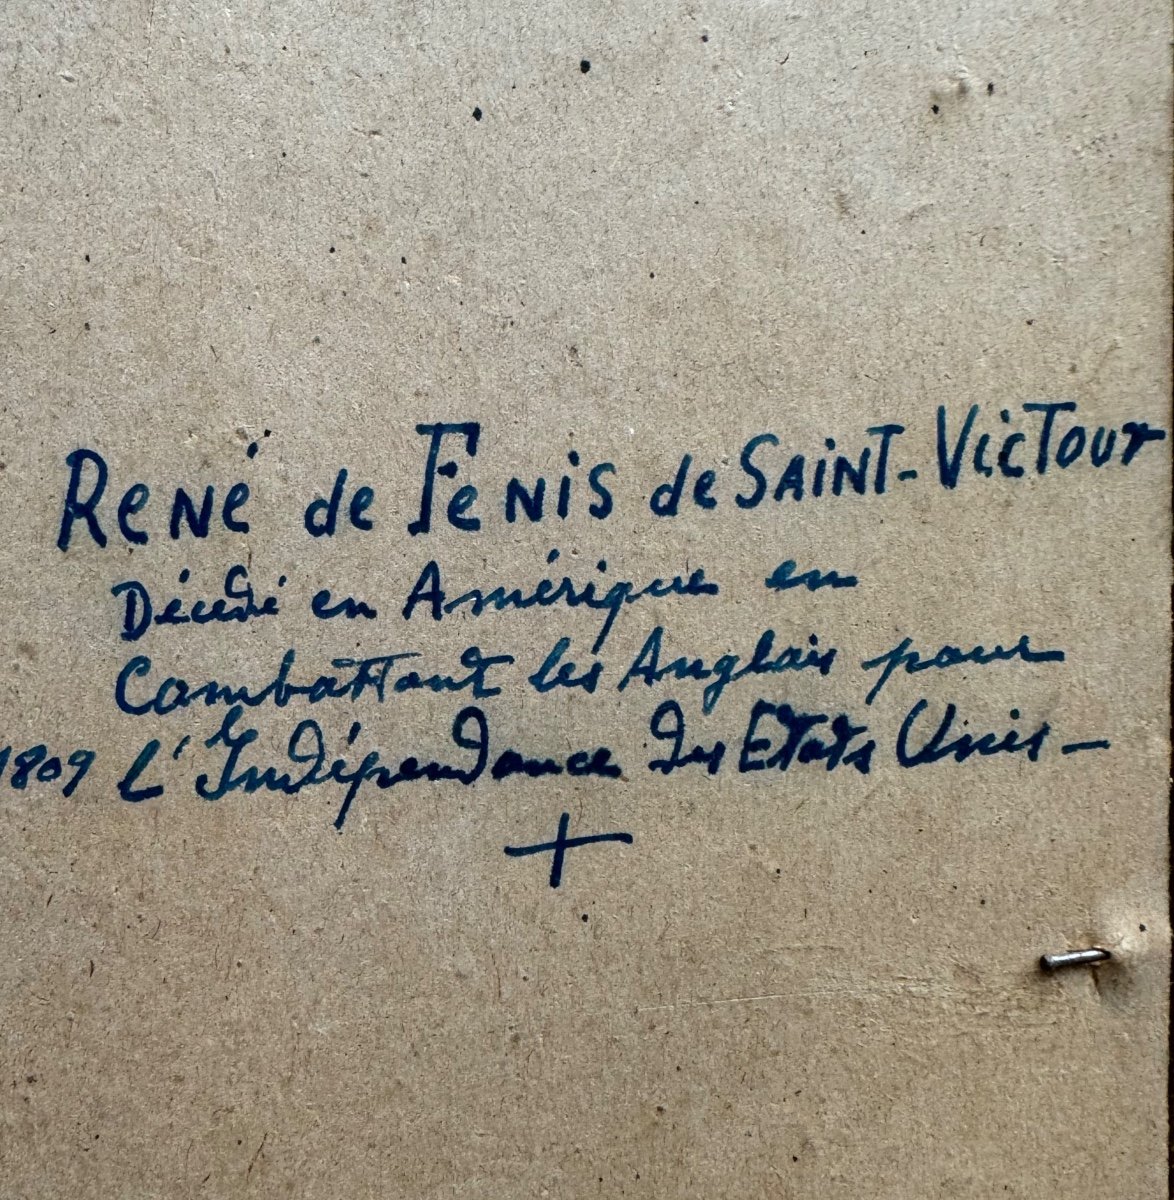 René de Fenis de SAINT-VICTOUR
Décédé en Amérique en
Combattant les Anglais pour
1809 L'Indépendance des Etats Unis -
+